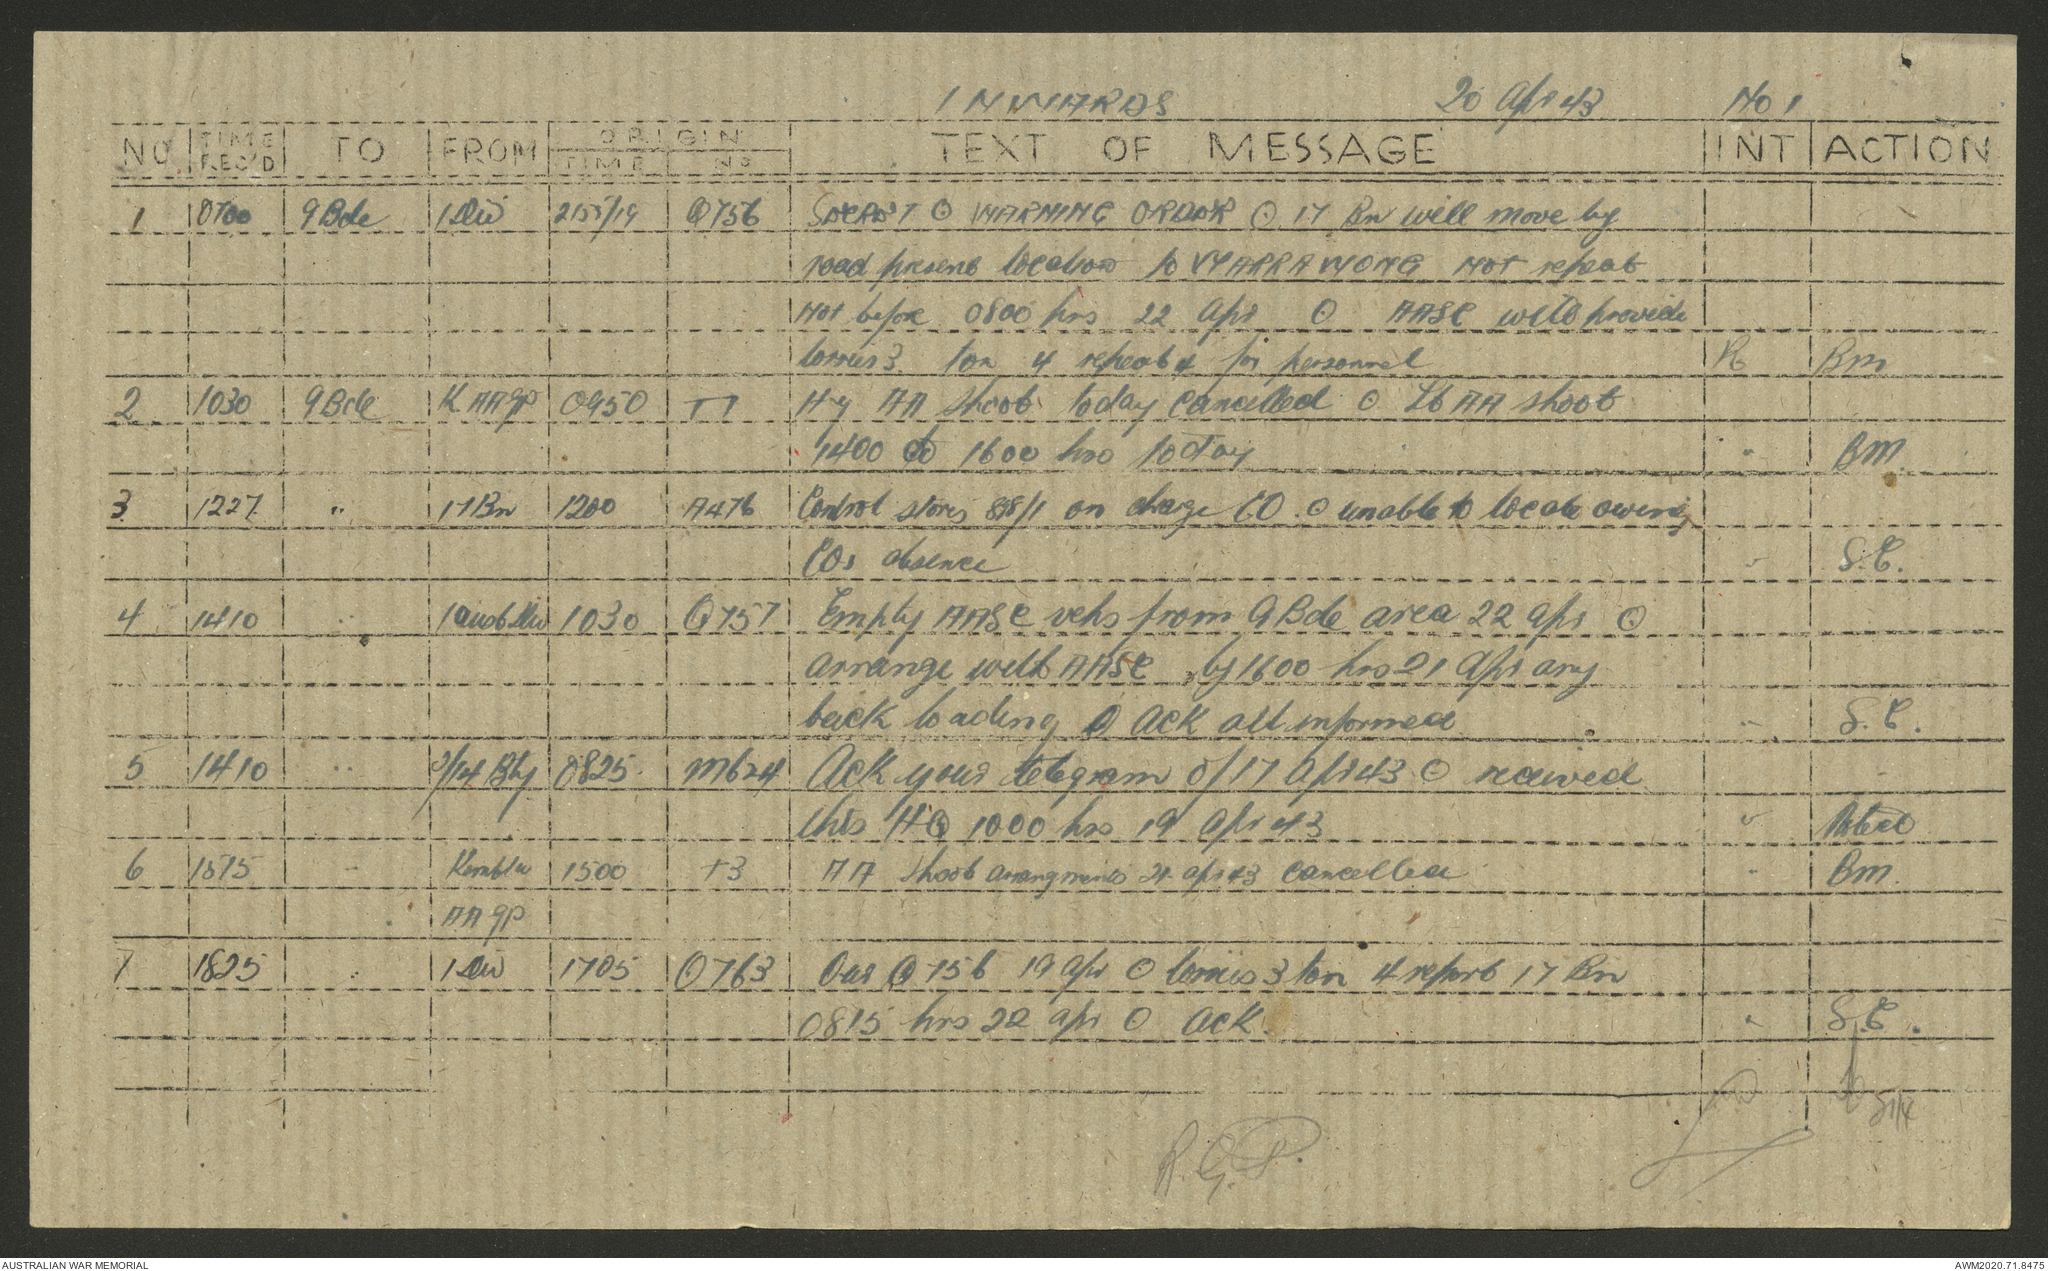 INWARDS 20 Apr 43 No 1
NO TIME REC'D TO FROM ORIGIN TIME NO TEXT OF MESSAGE INT ACTION
1 0700 9 Bde 1 Div 2155/19 Q756 SECRET ⊙ WARNING ORDER ⊙ 17 Bn will move by
road present location to WARRAWONG NOT repeat
NOT before 0800 hrs 22 Apr ⊙ AASC will provide
lorries 3 ton 4 repeat 4 for personnel Bm
2 1030 9 Bde K AA gp 0950 Hy AA Shoot today cancelled ⊙ Lt AA shoot
1400 to 1600 hrs today " Bm.
3 1227 " 17 Bn 1200 A476 Control stores 898/1 on charge CO. ⊙ unable to locate owing
COs absence " S.C.
4 1410 " 1 Aust Div 1030 Q757 Empty AASC vehs from 9 Bde area 22 Apr ⊙
arrange with AASC by 1600 hrs 21 Apr any
back loading ⊙ ACK all informed " S.C.
5 1410 " /14 Bty 0825 M624 Ack your telegram of 17 Apr 43 ⊙ received
this HQ 1000 hrs 19 Apr 43 " Noted
6 1515 " Kembla 1500 +3 AA Shoot arrangments 21 Apr 43 cancelled " Bm
AA gp
7 1825 " 1 Div 1705 Q763 Our Q756 19 Apr ⊙ lorries 3 ton 4 report 17 Bn
0815 hrs 22 Apr ⊙ ACK. " S.C.
21/4
R.G.P.
AUSTRALIAN WAR MEMORIAL AWM2020.71.8475